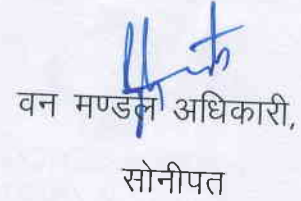 वन मण्डल अधिकारी,
सोनीपत